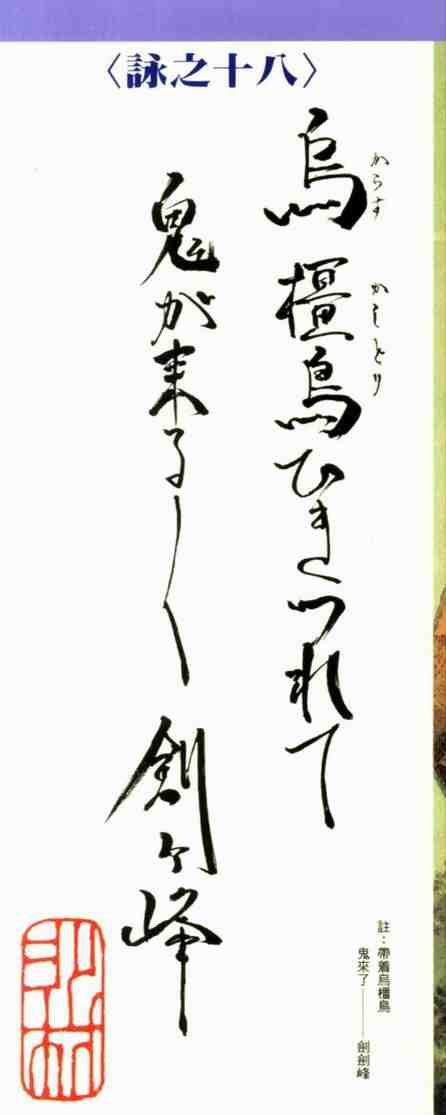 〈詠之十八〉
烏 橿鳥ひきつれて
からす かしどり
鬼が来る〳〵 剣ヶ峰
註：帶着烏橿鳥
鬼來了——劍劍峰